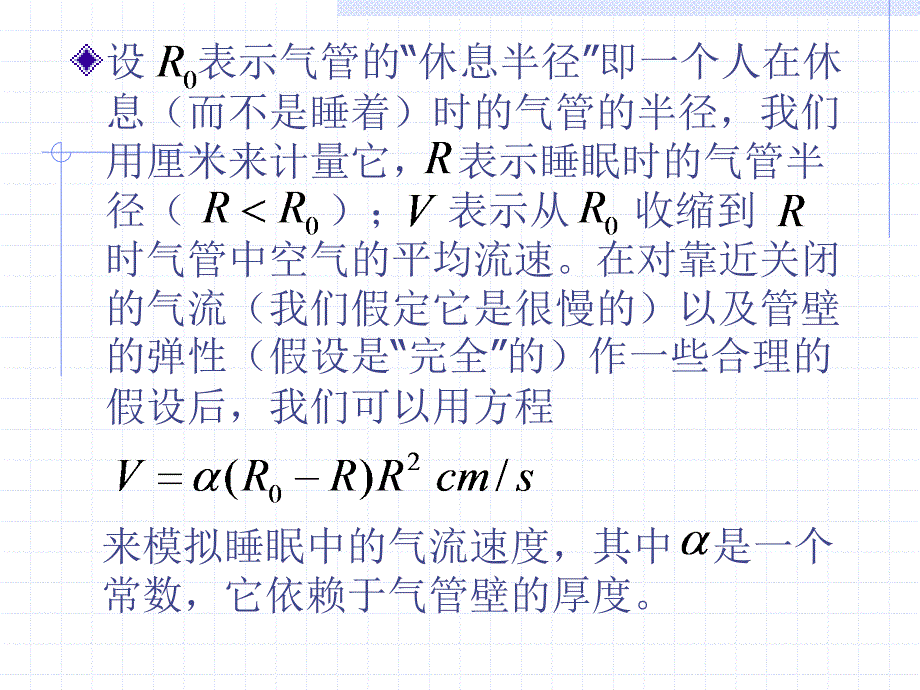 设 R₀表示气管的“休息半径”即一个人在休
息（而不是睡着）时的气管的半径，我们
用厘米来计量它，R 表示睡眠时的气管半
径（ R < R₀ ）；V 表示从 R₀ 收缩到 R
时气管中空气的平均流速。在对靠近关闭
的气流（我们假定它是很慢的）以及管壁
的弹性（假设是“完全”的）作一些合理的
假设后，我们可以用方程
V = α(R₀ − R)R² cm/s
来模拟睡眠中的气流速度，其中 α 是一个
常数，它依赖于气管壁的厚度。